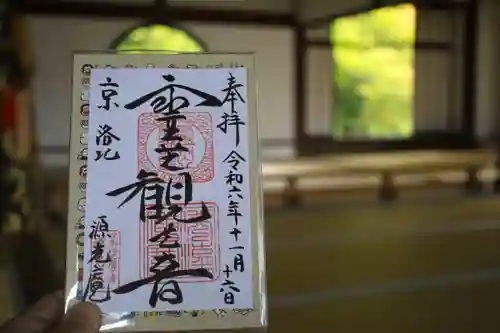 奉拝
令和六年十一月十六日
霊芝観世音
京洛北
源光菴